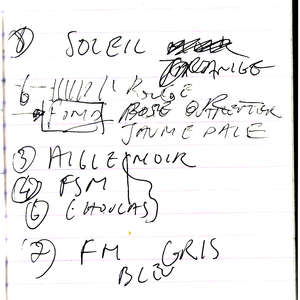 8) SOLEIL
ORANGE
6- ROUGE
FOMO ROSE
JAUME PALE
3) AIGLE NOIR
4) FSM
5) CHOUCAS
7) FM GRIS
BLEU